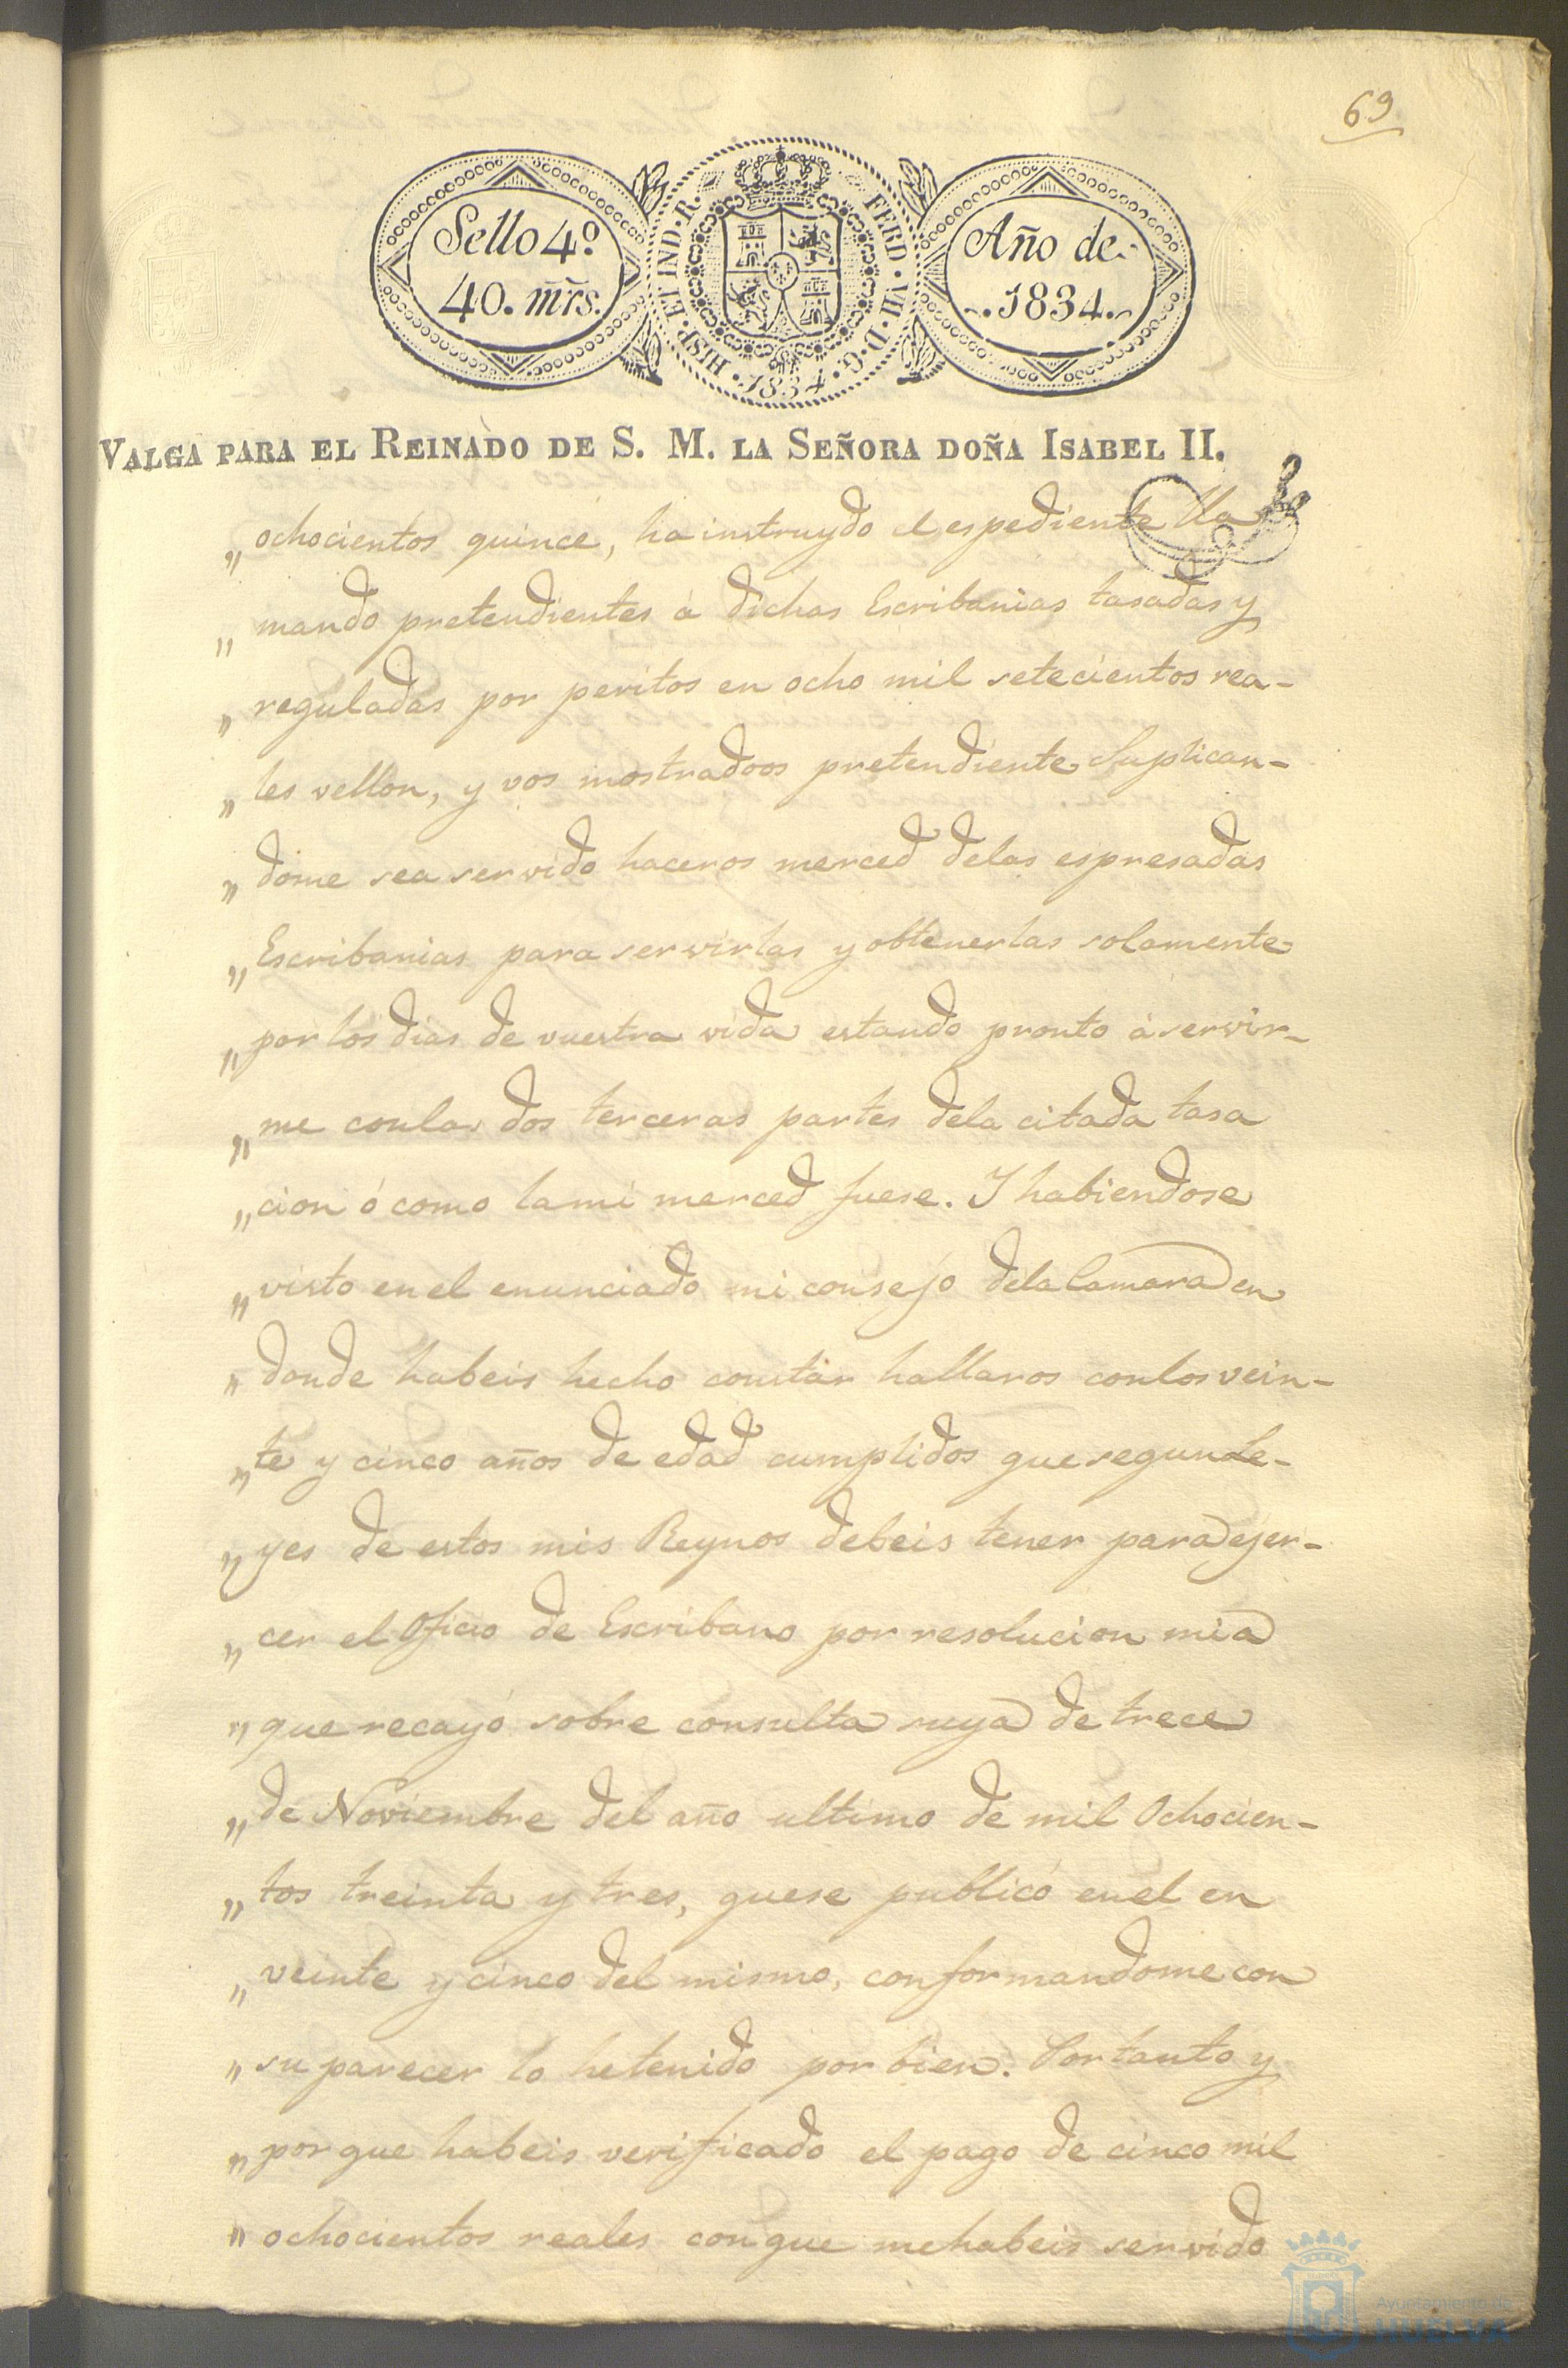 69
Sello 4º
40. mrs.
HISP. ET IND. R. FERD. VII. D. G. 1834.
Año de
1834.
VALGA PARA EL REINADO DE S. M. LA SEÑORA DOÑA ISABEL II.
„ ochocientos quince, ha instruydo el espediente lla
„ mando pretendientes á dichas Escribanias tasadas y
„ reguladas por peritos en ocho mil setecientos rea-
„ les vellon, y vos mostradoos pretendiente Suplican-
„ dome sea servido haceros merced delas espresadas
„ Escribanias para servirlas y obtenerlas solamente
„ por los dias de vuestra vida estando pronto á servir-
„ me conlas dos terceras partes dela citada tasa
„ cion ó como lami merced fuese. Y habiendose
„ visto en el enunciado mi consejo dela Camara en
„ donde habeis hecho constar hallaros conlos vein-
„ te y cinco años de edad cumplidos que segun Le-
„ yes de estos mis Reynos debeis tener para ejer-
„ cer el Oficio de Escribano por resolucion mia
„ que recayó sobre consulta suya de trece
„ de Noviembre del año ultimo de mil Ochocien-
„ tos treinta y tres, quese publicó enel en
„ veinte y cinco del mismo, conformandome con
„ su parecer lo hetenido por bien. Portanto y
„ por que habeis verificado el pago de cinco mil
„ ochocientos reales conque mehabeis servido
Ayuntamiento de
HUELVA